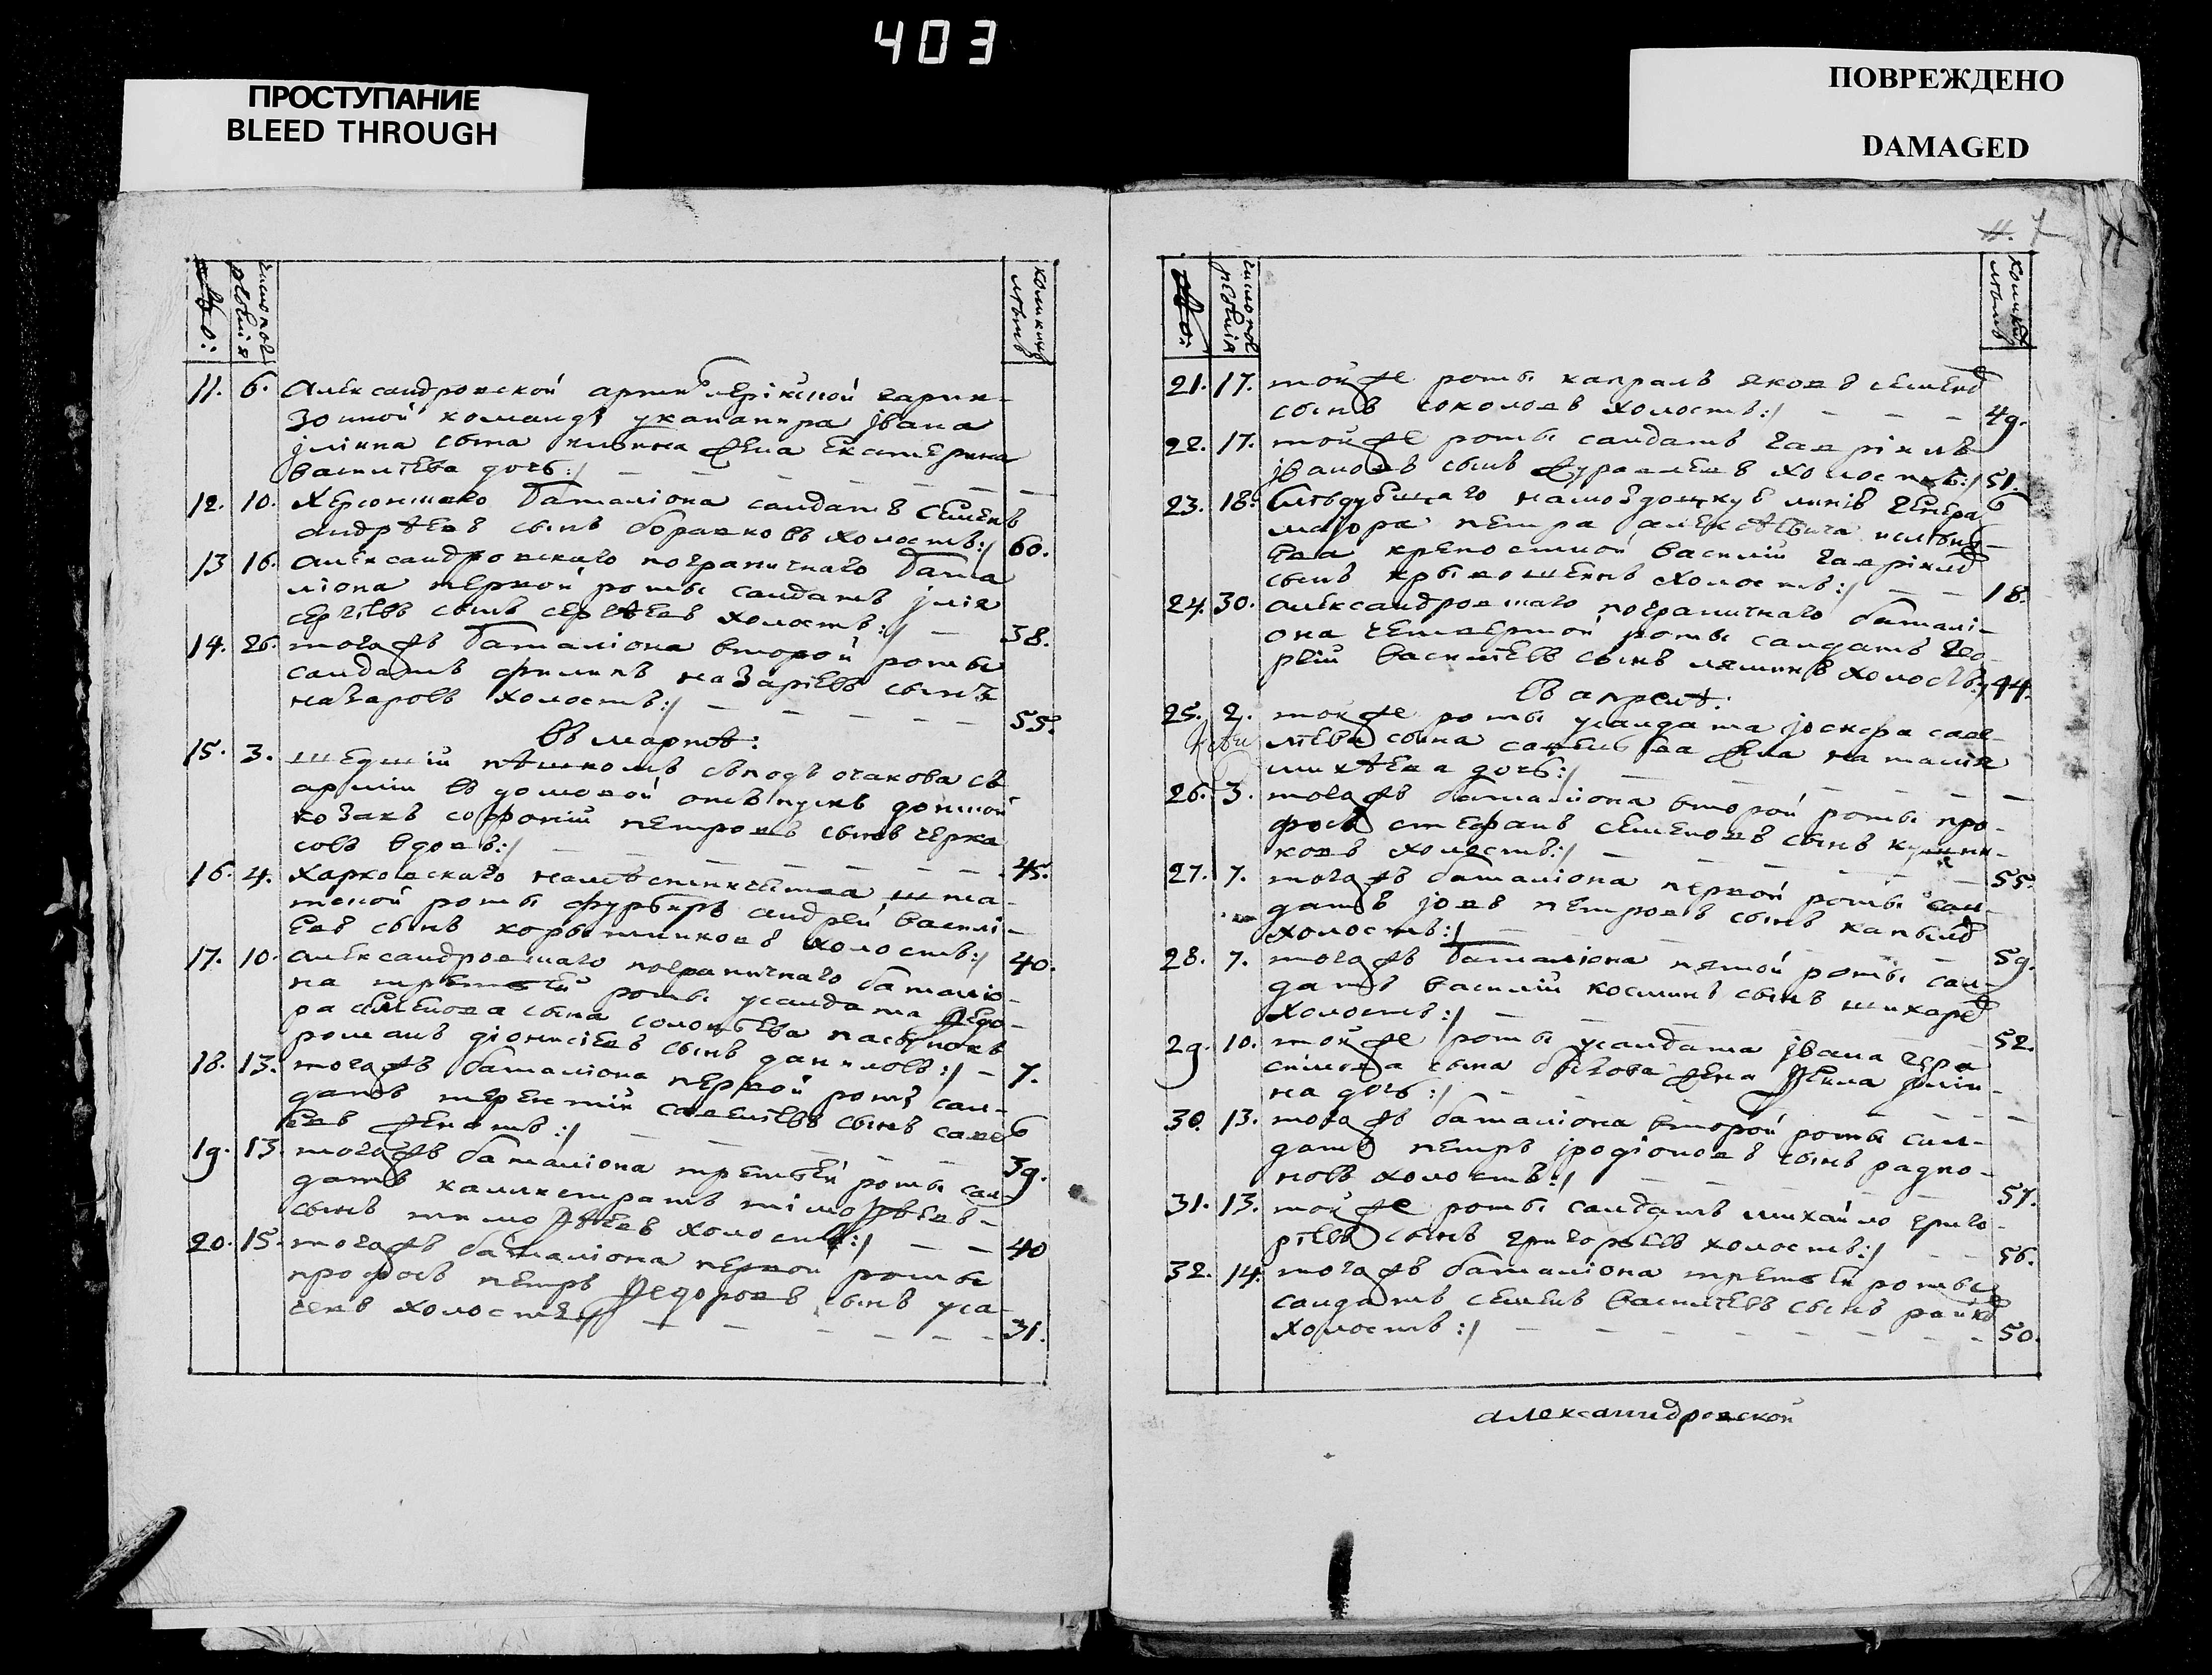 403
ПРОСТУПАНИЕ
BLEED THROUGH
ПОВРЕЖДЕНО
DAMAGED
число пог
ребенія
количк
лѣтъ
11. 6. Александровской артилерійской гарни-
зонной команды уканапира јвана
јлiина сына жена Екатерина
василіева дочь:/ — — —
12. 10. Херсонскаго баталіона салдатъ Семенъ
андрѣевъ сынъ боравковъ холостъ:/ 60.
13 16. Александровскаго пограничнаго бата
ліона первой роты салдатъ јлія
сергіевъ сынъ сергѣевъ холостъ:/ — 38.
14. 26. тогожъ баталіона второй роты
салдатъ филипъ назаріевъ сынъ
назаровъ холостъ:/ — — — 55.
Въ мартѣ:
15. 3. шедшій пѣшкомъ съподъ очакова съ
арміи въ домовой отъпускъ донской
козакъ софроній петровъ сынъ черка
совъ вдовъ:/ — — — 45.
16. 4. Харковскаго намѣстничества шта-
тной роты фурьиръ андрей василі-
евъ сынъ коры холостъ:/ 40.
17. 10. Александровскаго пограничнаго баталіо-
на третьей роты усалдата Ѳедо-
ра семенова сына соловьева пасынокъ
романъ діонисіевъ сынъ даниловъ:/ — 7.
18. 13. тогожъ баталіона первой роты сал-
датъ терентій савеліевъ сынъ саве
евъ женатъ:/ — — — 39.
19. 13. тогожъ баталіона третьей роты сал-
датъ калистратъ тімоѳѣевъ-
сынъ тимоѳѣевъ холостъ:/ — — 40
20. 15. тогожъ баталіона первой роты
профосъ петръ Ѳедоровъ сынъ уса-
чевъ холостъ:/ — — — 31.
11. 7
число пог
ребенія
количк
лѣтъ
21. 17. тойже роты капралъ яковъ семенов
сынъ соколовъ холостъ:/ — — — 49.
22. 17. тойже роты салдатъ гавріилъ
јвановъ сынъ журавлевъ холостъ:/ 51.
23. 18. линіѣ генера
маіора петра алексѣевича
ева крепостной василій гавріилов
сынъ кривошеинъ холостъ:/ — — 18.
24. 30. Александровскаго пограничнаго баталі-
она четвертой роты салдатъ гео-
ргій василіевъ сынъ ляминъ холостъ:/ 44.
Въ апрелѣ:
25. 2. тойже роты усалдата јосифа саве-
ліева сына савельева жена наталія
михѣева дочь:/ — — —
26. 3. тогожъ баталіона второй роты про-
фосъ стефанъ семеновъ сынъ
ковъ холостъ:/ — — — 55.
27. 7. тогожъ баталіона первой роты сал-
датъ јовъ петровъ сынъ капылов
холостъ:/ — — — 59.
28. 7. тогожъ баталіона пятой роты сал-
датъ василій косминъ сынъ шихарев
холостъ:/ — — — 52.
29. 10. тойже роты усалдата јвана гера
симова сына жена Ѳекла јлiи-
на дочь:/ — — —
30. 13. тогожъ баталіона второй роты сал-
датъ петръ јродіоновъ сынъ радио-
новъ холостъ:/ — — — 57.
31. 13. тойже роты салдатъ михайло григо-
ріевъ сынъ григорьевъ холостъ:/ — — 56.
32. 14. тогожъ баталіона третьей роты
салдатъ семенъ василіевъ сынъ райков
холостъ:/ — — — 50.
александровской